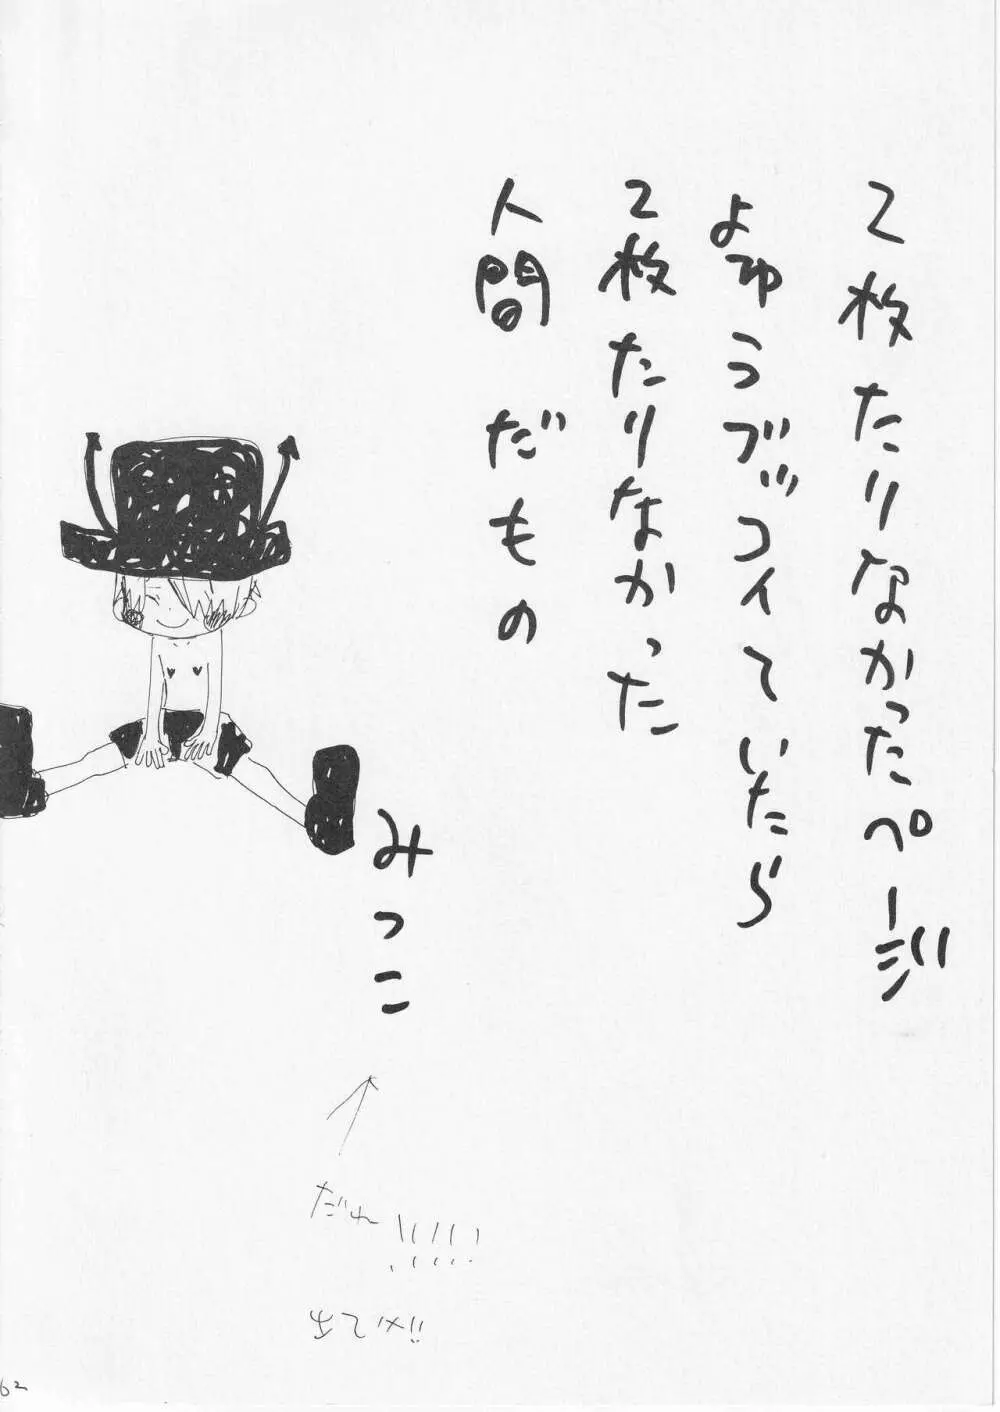 2枚たりなかったページ
よゆうブッコイていたら
2枚たりなかった
人間だもの
みつこ
だれ!!!!!
出てい!!
62